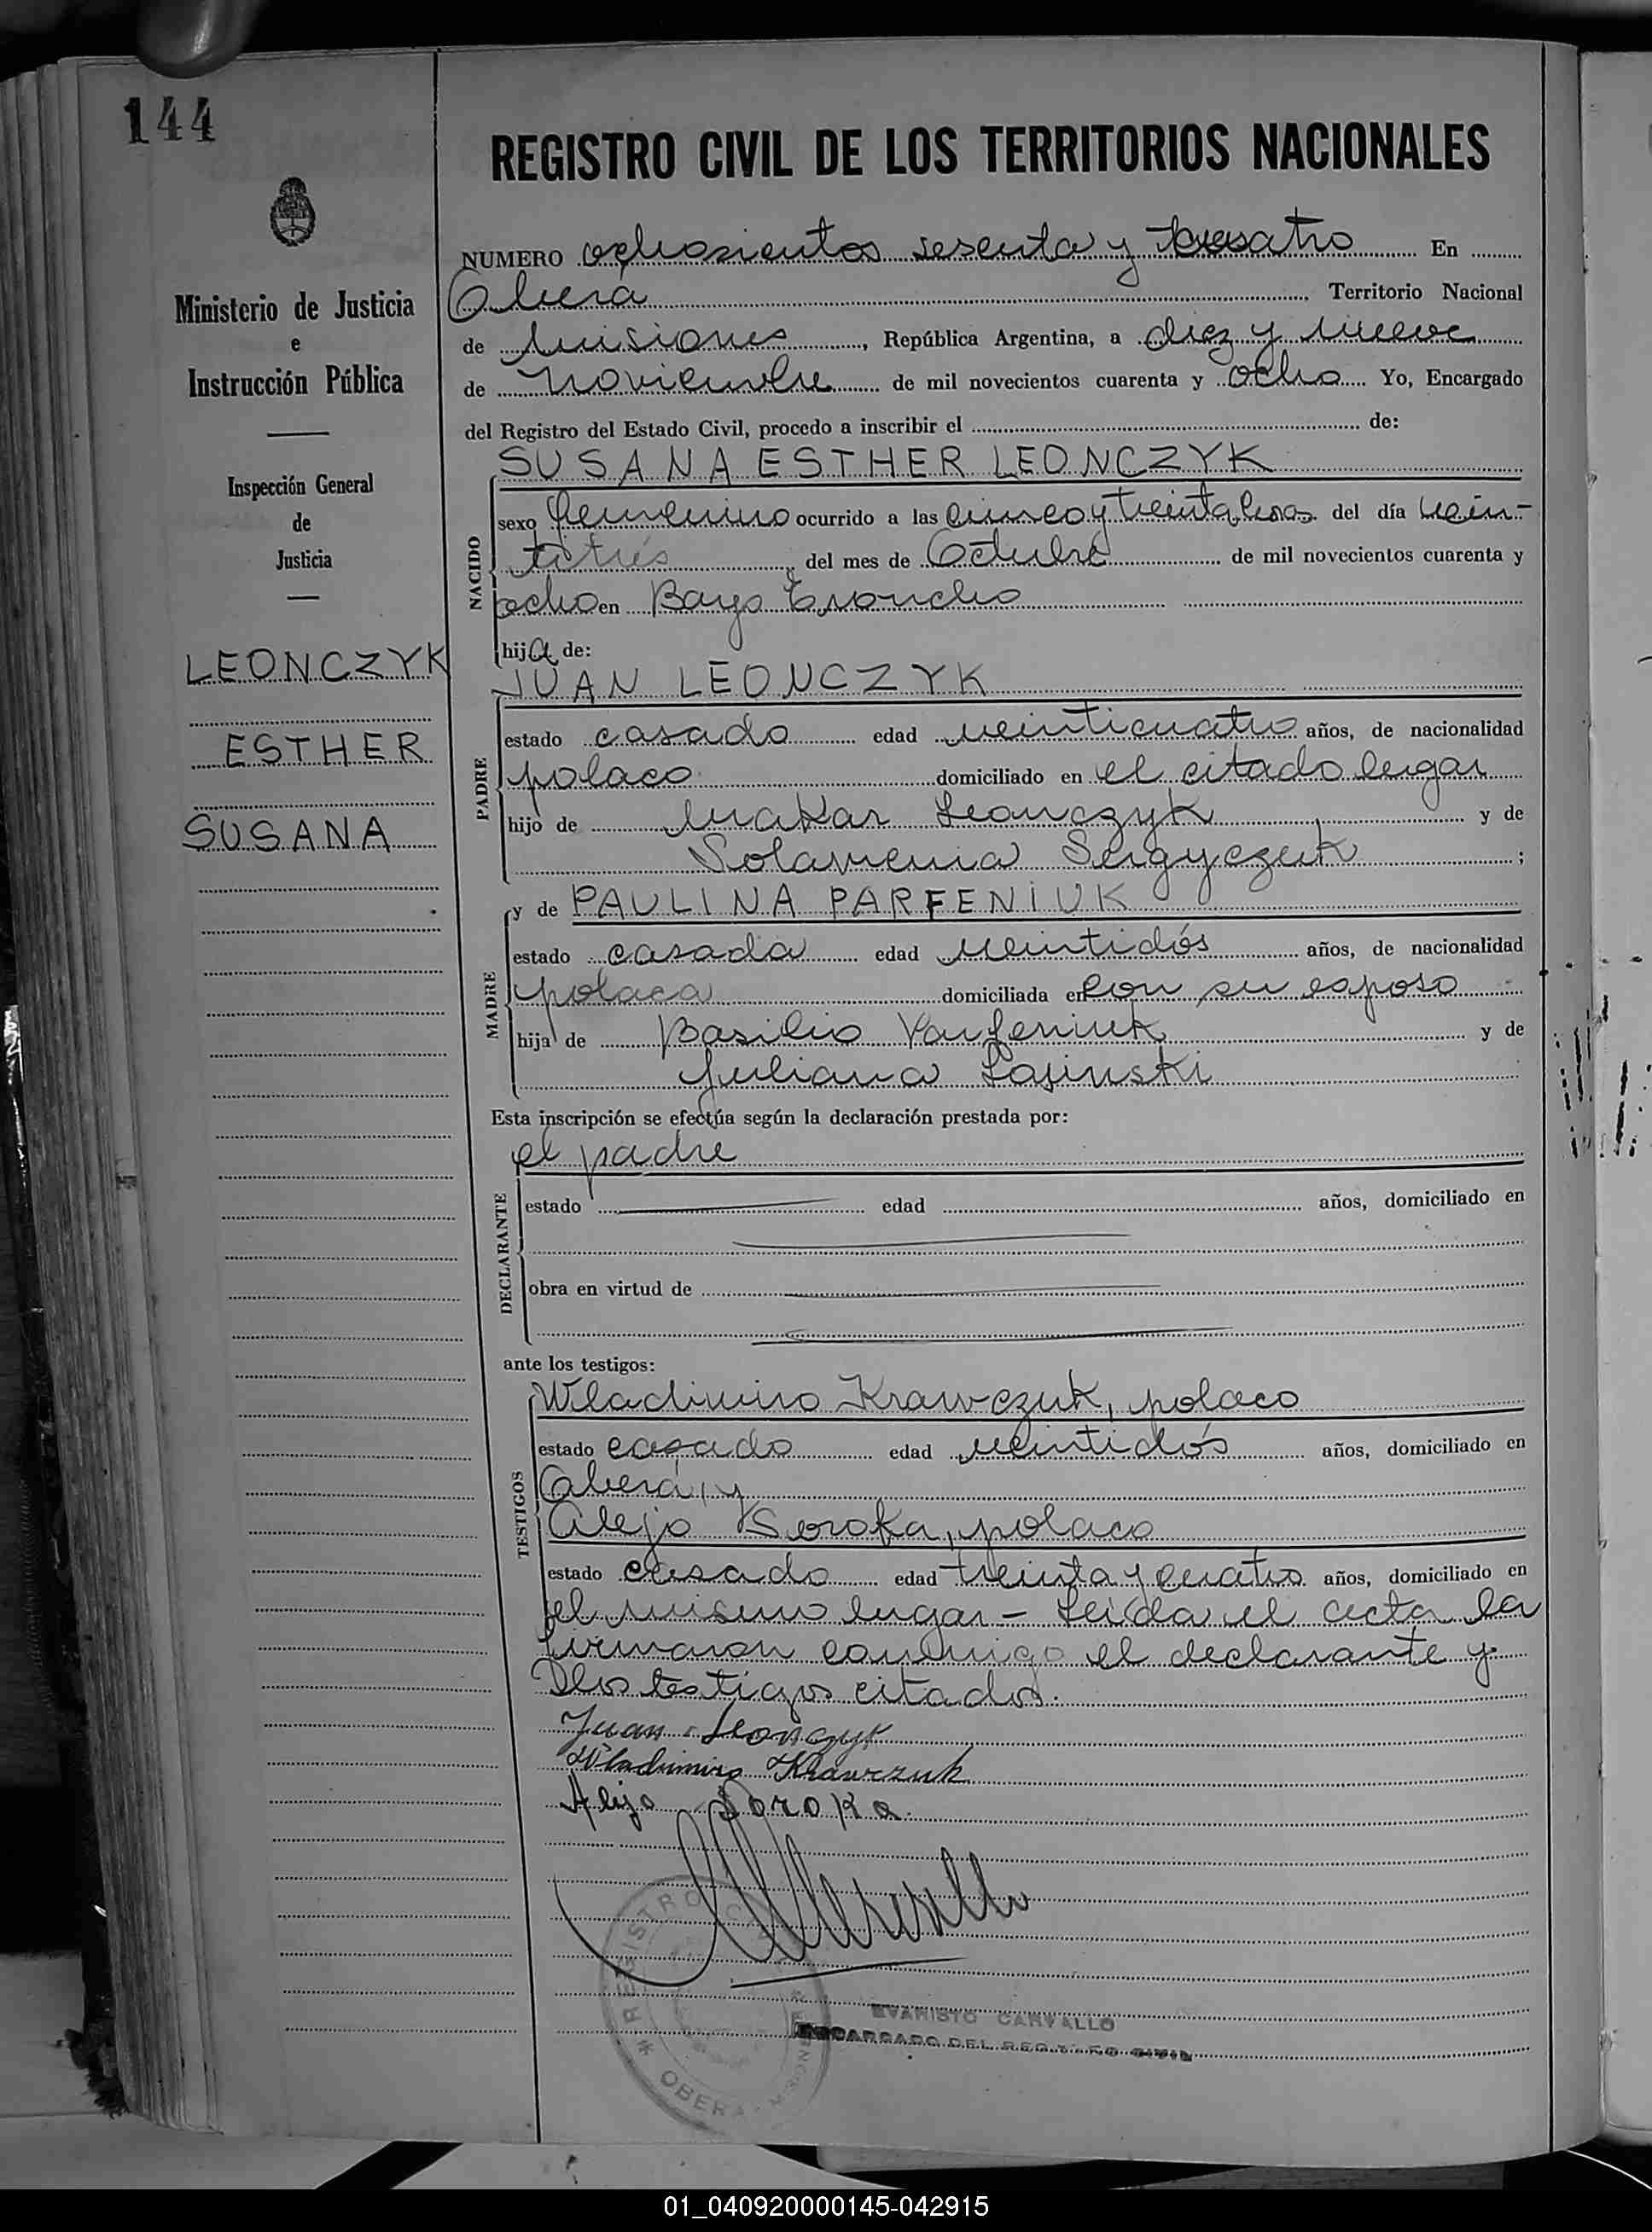 144
REGISTRO CIVIL DE LOS TERRITORIOS NACIONALES
Ministerio de Justicia
e
Instrucción Pública
Inspección General
de
Justicia
LEONCZYK
ESTHER
SUSANA
NUMERO ochosientos sesenta y En
Oberá Territorio Nacional
de Misiones, República Argentina, a diez y nueve
de Noviembre de mil novecientos cuarenta y ocho Yo, Encargado
del Registro del Estado Civil, procedo a inscribir el de:
SUSANA ESTHER LEONCZYK
NACIDO
sexo femenino ocurrido a las cinco y treinta horas del día vein-
titrés del mes de Octubre de mil novecientos cuarenta y
ocho en Bayo Troncho
hija de:
JUAN LEONCZYK
PADRE
estado casado edad veinticuatro años, de nacionalidad
polaco domiciliado en el citado lugar
hijo de Makar Leonczyk y de
Solamenia ;
y de PAULINA PARFENIUK
MADRE
estado casada edad veintidós años, de nacionalidad
polaca domiciliada en con su esposo
hija de Basilio Parfeniuk y de
Juliana Lasinski
Esta inscripción se efectúa según la declaración prestada por:
el padre
DECLARANTE
estado edad años, domiciliado en
obra en virtud de
ante los testigos:
TESTIGOS
Wladimiro Krawczuk, polaco
estado casado edad veintidós años, domiciliado en
Oberá, y
Alejo Soroka, polaco
estado casado edad treinta y cuatro años, domiciliado en
el mismo lugar - Leida el acta la
firmaron conmigo el declarante y
los testigos citados.
Juan Leonczyk
Wladimiro Krawczuk
Alejo Soroka
REGISTRO CIVIL * OBERA - MISIONES *
EVARISTO CARVALLO
ENCARGADO DEL REGISTRO CIVIL
01_040920000145-042915